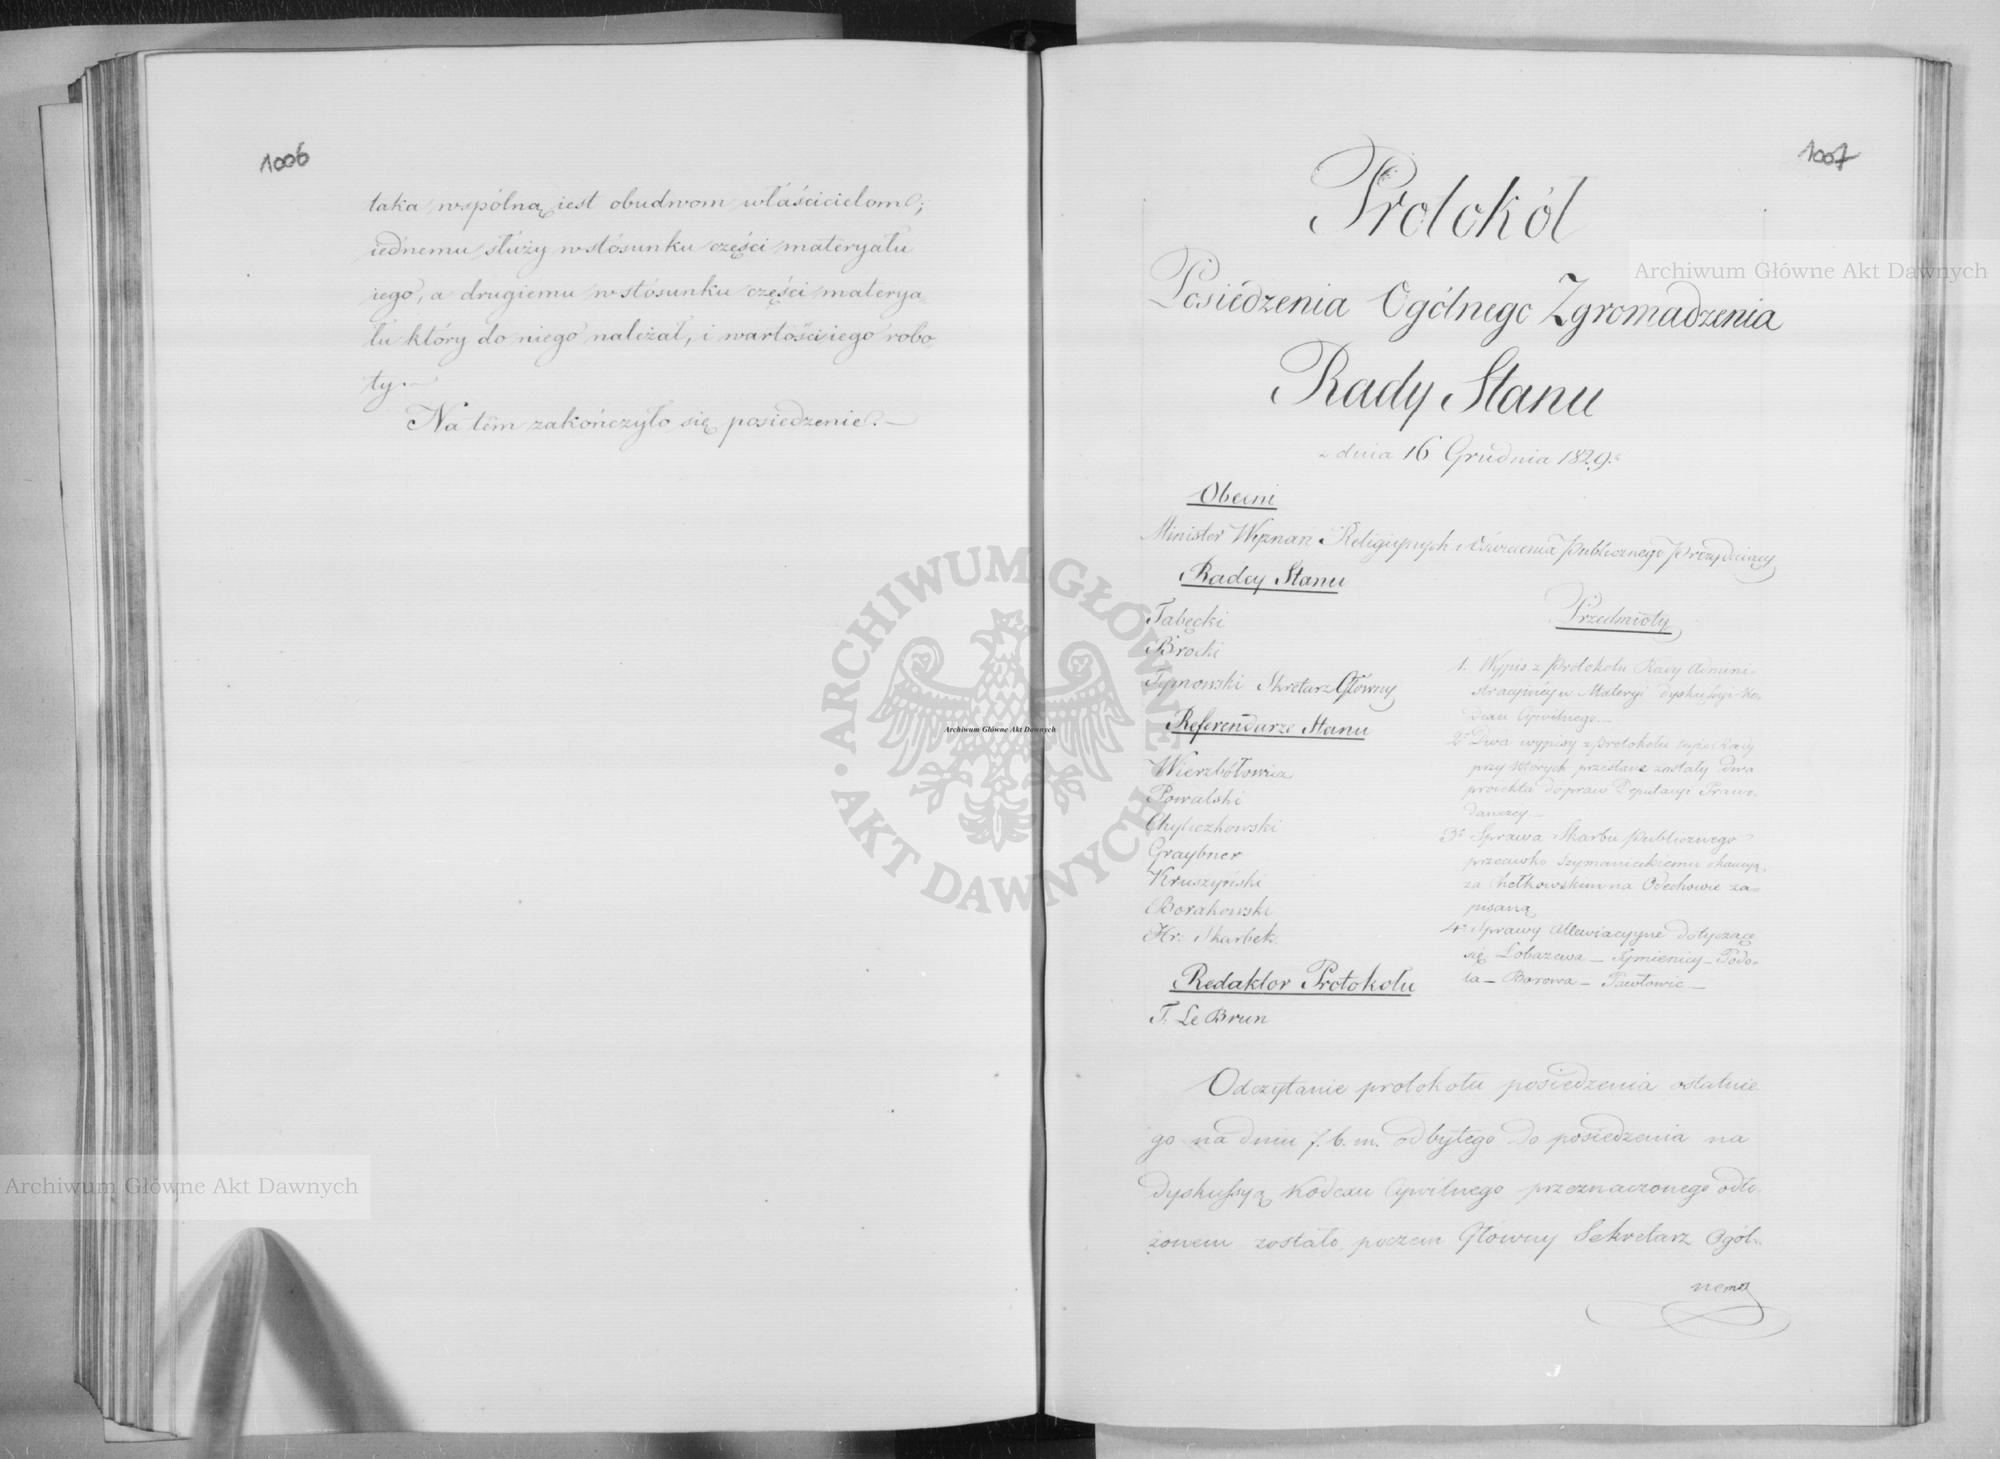 1006
taka wspólną iest obudwom właścicielom;
iednemu służy w stósunku części materyału
iego, a drugiemu w stósunku części materya
łu który do niego należał, i wartości iego robo
ty.—
Na tém zakończyło się posiedzenie.—
1007
Protokół
Posiedzenia Ogólnego Zgromadzenia
Rady Stanu
z dnia 16 Grudnia 1829.
Obecni
Minister Wyznań Religijnych i Oświecenia Publicznego Prezydujący
Radcy Stanu
Tabęcki
Brocki
Tymowski Skretarz Główny
Referendarze Stanu
Wierzbołowicz
Powalski
Chyliczkowski
Graybner
Kruszyński
Borakowski
Hr. Skarbek
Redaktor Protokołu
T. Le Brun
Przedmioty
1. Wypis z Protokołu Rady Admini-
stracyiney w Materyi dyskussyi Ko-
dexu Cywilnego.—
2° Dwa wypisy z Protokołu teyże Rady
przy których przesłane zostały dwa
proiekta do praw Deputacyi Prawo-
dawczey—
3° Sprawa Skarbu Publicznego
przeciwko Szymanieckiemu o kaucyą
za Chełkowskim na Odechowie za-
pisaną
4° Sprawy Allewiacyyne dotyczące
się Łobaczewa — Żymienicy — Podo-
la — Borowa — Pawłowic —
Odczytanie protokołu posiedzenia ostatnie
go na dniu 7. b. m. odbytego do posiedzenia na
dyskussyą Kodexu Cywilnego przeznaczonego odło
żonem zostało, poczem Główny Sekretarz Ogól-
nemu
Archiwum Główne Akt Dawnych
Archiwum Główne Akt Dawnych
Archiwum Główne Akt Dawnych
ARCHIWUM GŁÓWNE • AKT DAWNYCH